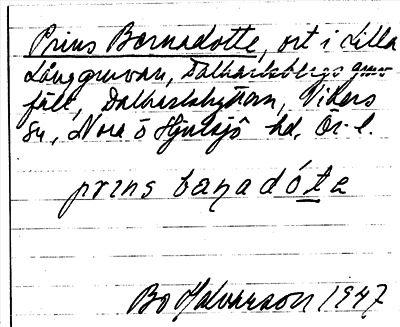 Prins Bernadotte, ort i Lilla
Långgruvan, Dalkarlsbergs gruv-
fält, Dalkarlshyttan, Vikers
sn, Nora o Hjulsjö hd, Ör. l.
prins baɳadóte
Bo Halvarson 1947